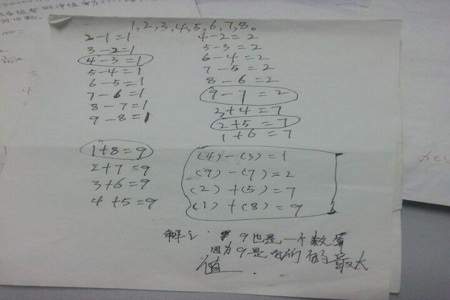 1,2,3,4,5,6,7,8。
2-1=1
3-2=1
4-3=1
5-4=1
6-5=1
7-6=1
8-7=1
9-8=1
4-2=2
5-3=2
6-4=2
7-5=2
8-6=2
9-7=2
3+4=7
2+5=7
1+6=7
1+8=9
2+7=9
3+6=9
4+5=9
(4)-(3)=1
(9)-(7)=2
(2)+(5)=7
(1)+(8)=9
9也是一个数
因为9是 最大
值